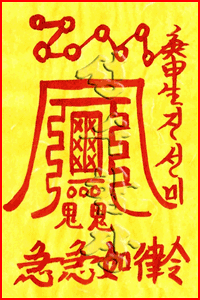 庚申生진선미
鬼鬼
急急如律令